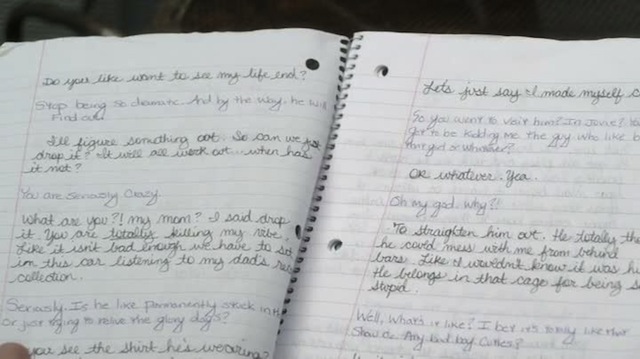 Do you like want to see my life end?
Stop being so dramatic. And by the way, he will
Find out.
I'll figure something out. So can we just
drop it? It will all work out... when has
it not?
You are seriously crazy.
What are you?! my mom? I said drop
it. You are totally killing my vibe.
Like it isn't bad enough we have to sit
in this car listening to my dad's
collection.
Seriously. Is he like permanently stuck in
Or just trying to relive the glory days?
you see the shirt he's wearing?
Lets just say I made myself c
So you went to visit him? In Juvie? You
got to be kidding me. The guy who like b
your girl or whatever?
OR whatever. Yea.
Oh my god. why?!
To straighten him out. He totally th
he could mess with me from behind
bars. Like I wouldn't know it was h
He belongs in that cage for being s
stupid.
Well, What's it like? I bet it's totally like that
Show Oz. Any bad boy Cuties?